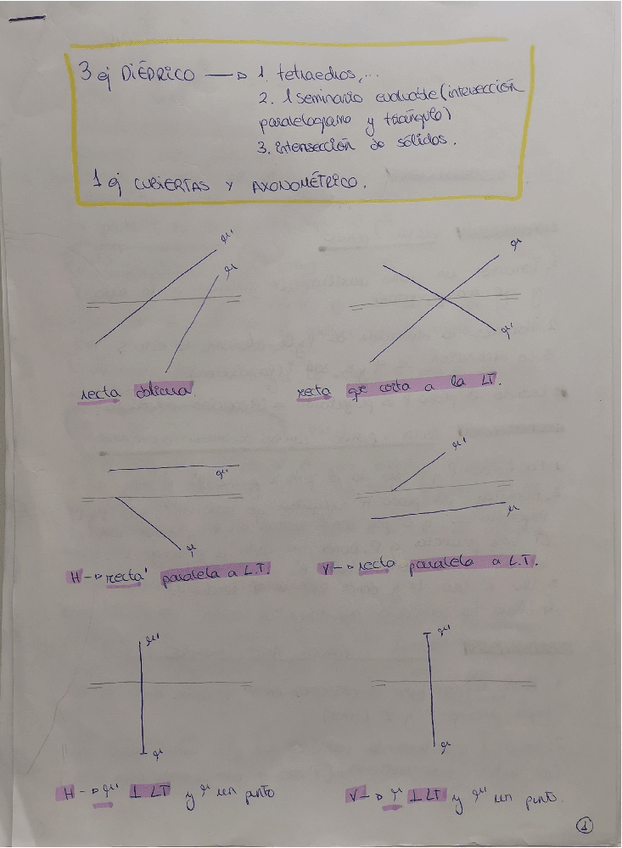 3 ej DIÉDRICO → 1. tetraedros,...
2. 1 seminario evaluable (intersección
paralelogramo y triángulo)
3. intersección de sólidos.
1 ej CUBIERTAS Y AXONOMÉTRICO.
r'' r
r' r'
recta oblicua recta que corta a la LT.
r'' r''
r' r
H → recta paralela a L.T. V → recta paralela a L.T.
r'' r''
r' r
H → r'' ⊥ LT y r' un punto V → r' ⊥ LT y r'' un punto.
1